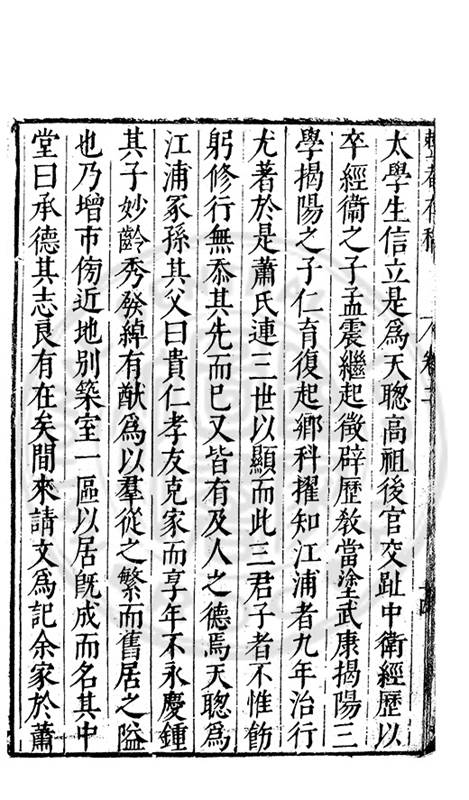 太學生信立是為天聰高祖後官交趾中衛經歷以
卒經衛之子孟震繼起徵辟歷教當塗武康揭陽三
學揭陽之子仁育復起鄉科擢知江浦者九年治行
尤著於是蕭氏連三世以顯而此三君子者不惟飭
躬修行無忝其先而巳又皆有及人之德焉天聰為
江浦冢孫其父曰貴仁孝友克家而享年不永慶鍾
其子妙齡秀發綽有猷為以羣從之繁而舊居之隘
也乃增市傍近地别築室一區以居旣成而名其中
堂曰承德其志良有在矣間來請文為記余家於蕭